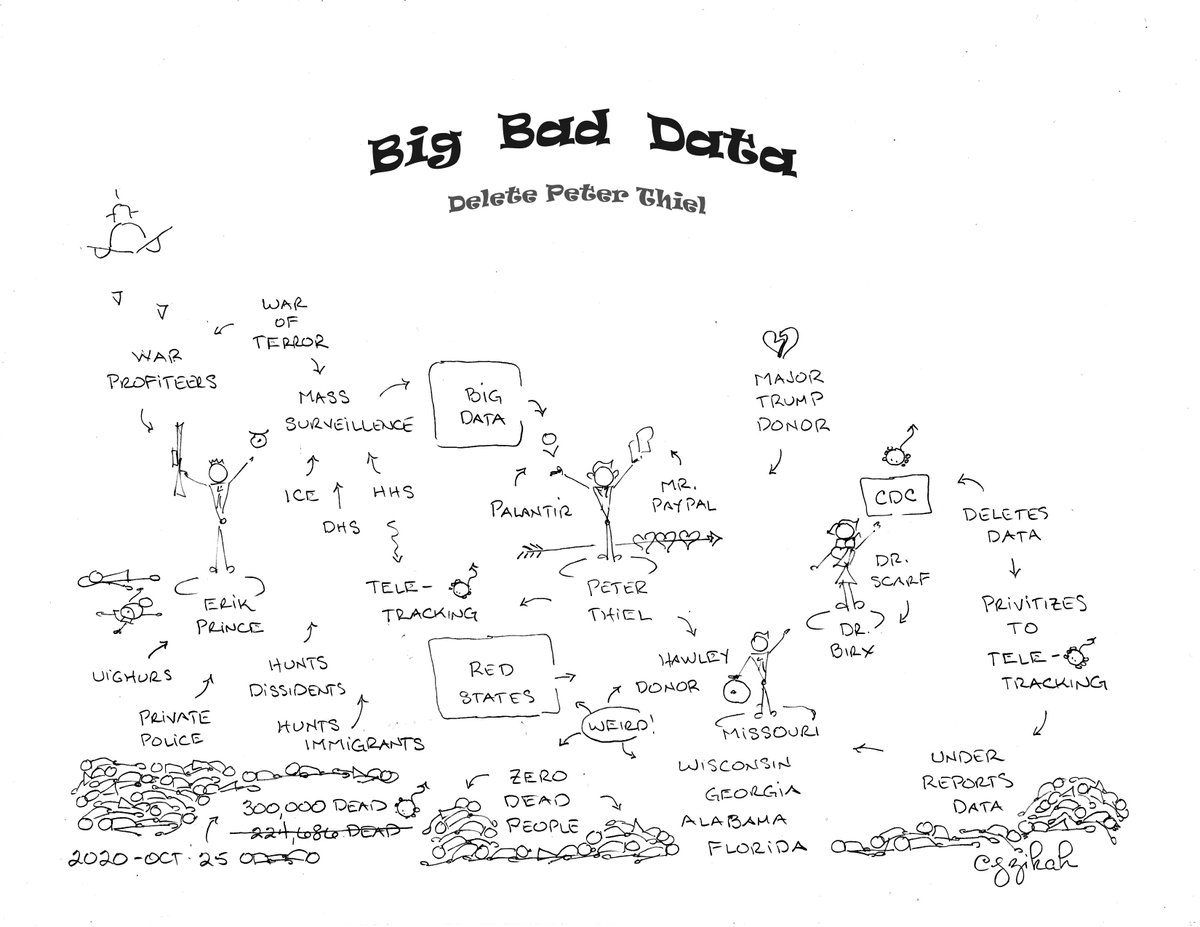 Big Bad Data
Delete Peter Thiel
WAR
OF
TERROR
WAR
PROFITEERS
MASS
SURVEILLENCE
BIG
DATA
MAJOR
TRUMP
DONOR
ICE
DHS
HHS
PALANTIR
MR.
PAYPAL
CDC
DELETES
DATA
DR.
SCARF
TELE-
TRACKING
PETER
THIEL
ERIK
PRINCE
DR.
BIRX
PRIVITIZES
TO
TELE-
TRACKING
UIGHURS
HUNTS
DISSIDENTS
RED
STATES
HAWLEY
DONOR
WEIRD!
MISSOURI
PRIVATE
POLICE
HUNTS
IMMIGRANTS
ZERO
DEAD
PEOPLE
WISCONSIN
GEORGIA
ALABAMA
FLORIDA
UNDER
REPORTS
DATA
300,000 DEAD
224,686 DEAD
2020-OCT-25
cszikah